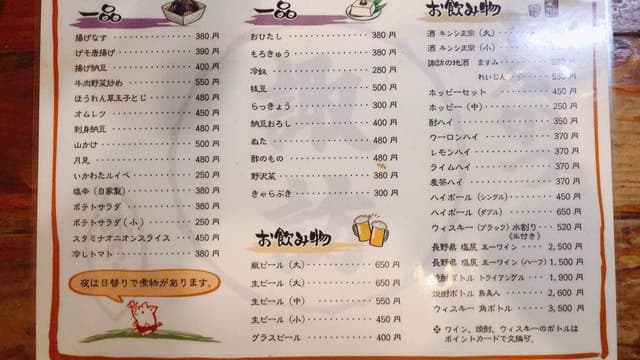 一品
揚げなす 380円
げそ唐揚げ 390円
揚げ納豆 400円
牛肉野菜炒め 550円
ほうれん草玉子とじ 480円
オムレツ 450円
刺身納豆 480円
山かけ 500円
月見 480円
いかわたルイベ 250円
塩辛(自家製) 380円
ポテトサラダ 380円
ポテトサラダ(小) 250円
スタミナオニオンスライス 450円
冷しトマト 380円
夜は日替りで煮物があります。
一品
おひたし 380円
もろきゅう 380円
冷奴 280円
枝豆 500円
らっきょう 300円
納豆おろし 400円
ぬた 480円
酢のもの 480円
野沢菜 380円
きゃらぶき 300円
お飲み物
瓶ビール(大) 650円
生ビール(大) 650円
生ビール(中) 550円
生ビール(小) 450円
グラスビール 400円
お飲み物
酒 キンシ正宗(大)
酒 キンシ正宗(小)
諏訪の地酒 ますみ
れいじん 530円
ホッピーセット 450円
ホッピー(中) 250円
酎ハイ 350円
ウーロンハイ 370円
レモンハイ 370円
ライムハイ 370円
麦茶ハイ 370円
ハイボール(シングル) 450円
ハイボール(ダブル) 650円
ウィスキー(ブラック)水割り 520円
(氷付き)
長野県 塩尻 五一ワイン 2,500円
長野県 塩尻 五一ワイン(ハーフ) 1,500円
焼酎ボトル トライアングル 1,900円
焼酎ボトル 2,600円
ウィスキー 角ボトル 3,500円
※ ワイン、焼酎、ウィスキーのボトルは
ポイントカードで交換可。